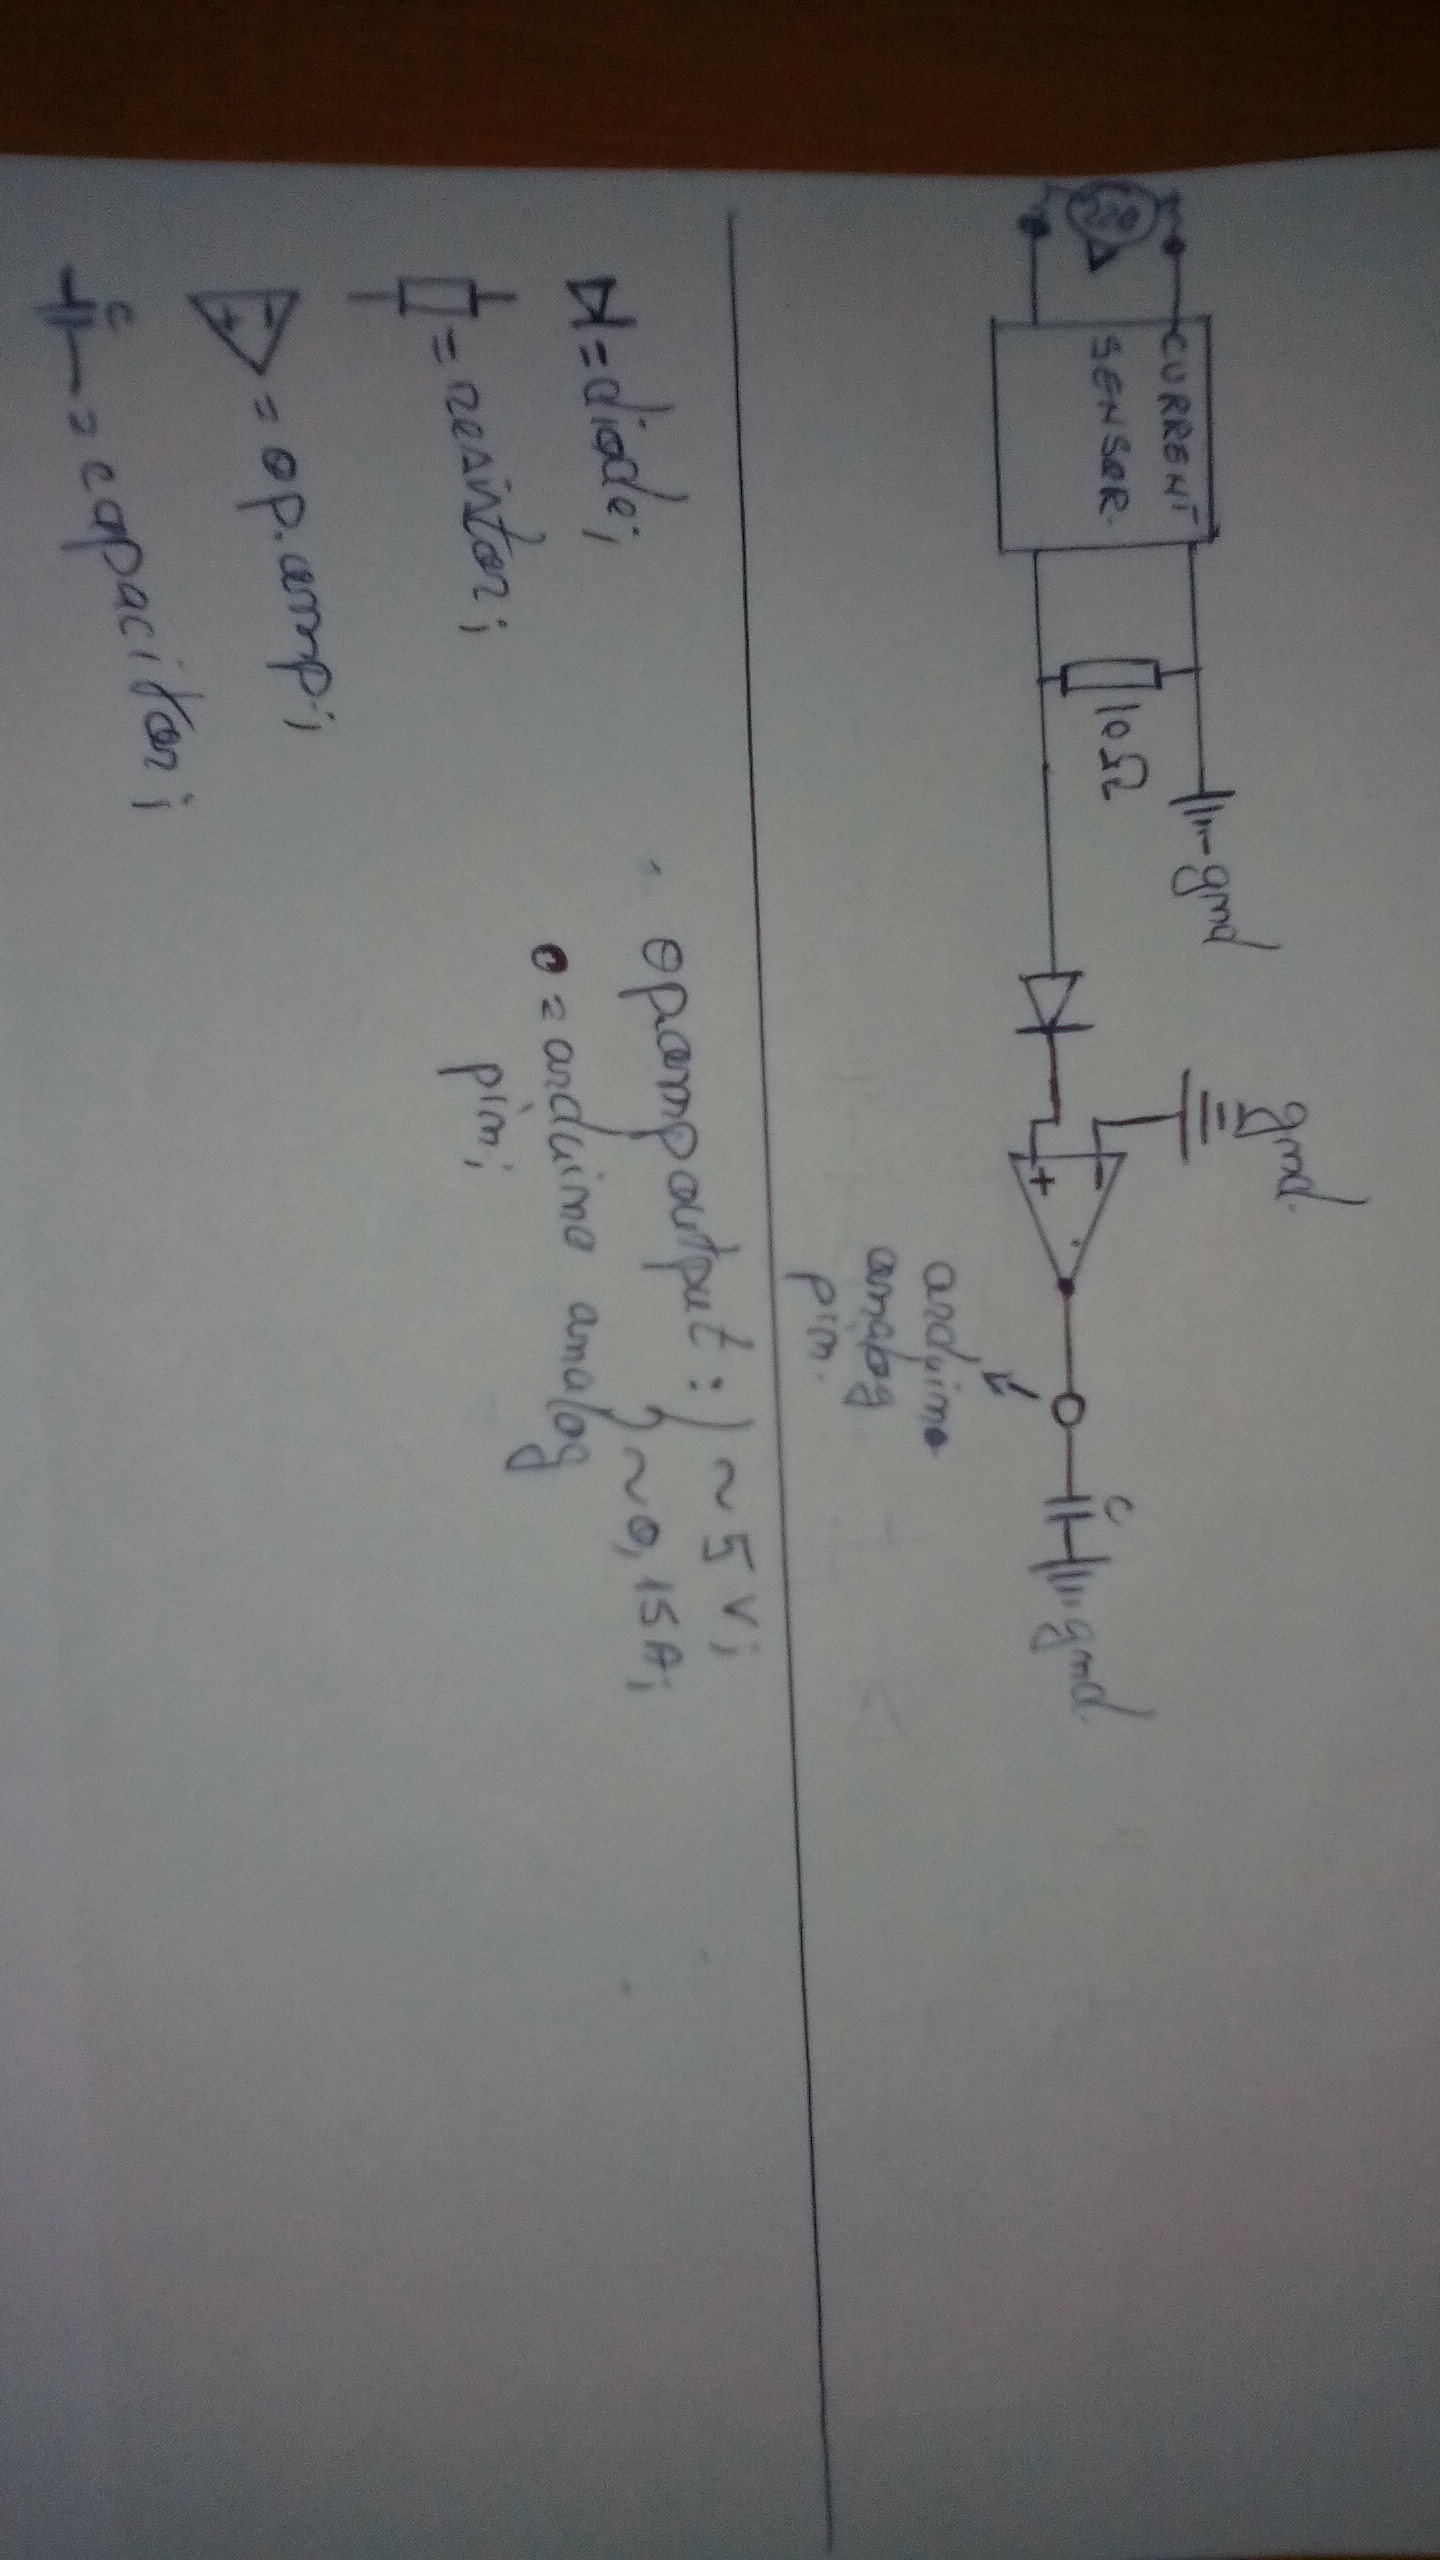 220
CURRENT
SENSOR.
10Ω
gnd
gnd.
+
-
arduino
analog
pin.
c
gnd.
= diode;
= resistor;
- + = op.amp;
c = capacitor;
op.amp output: ~ 5 V;
~ 0,15 A;
= arduino analog
pin;